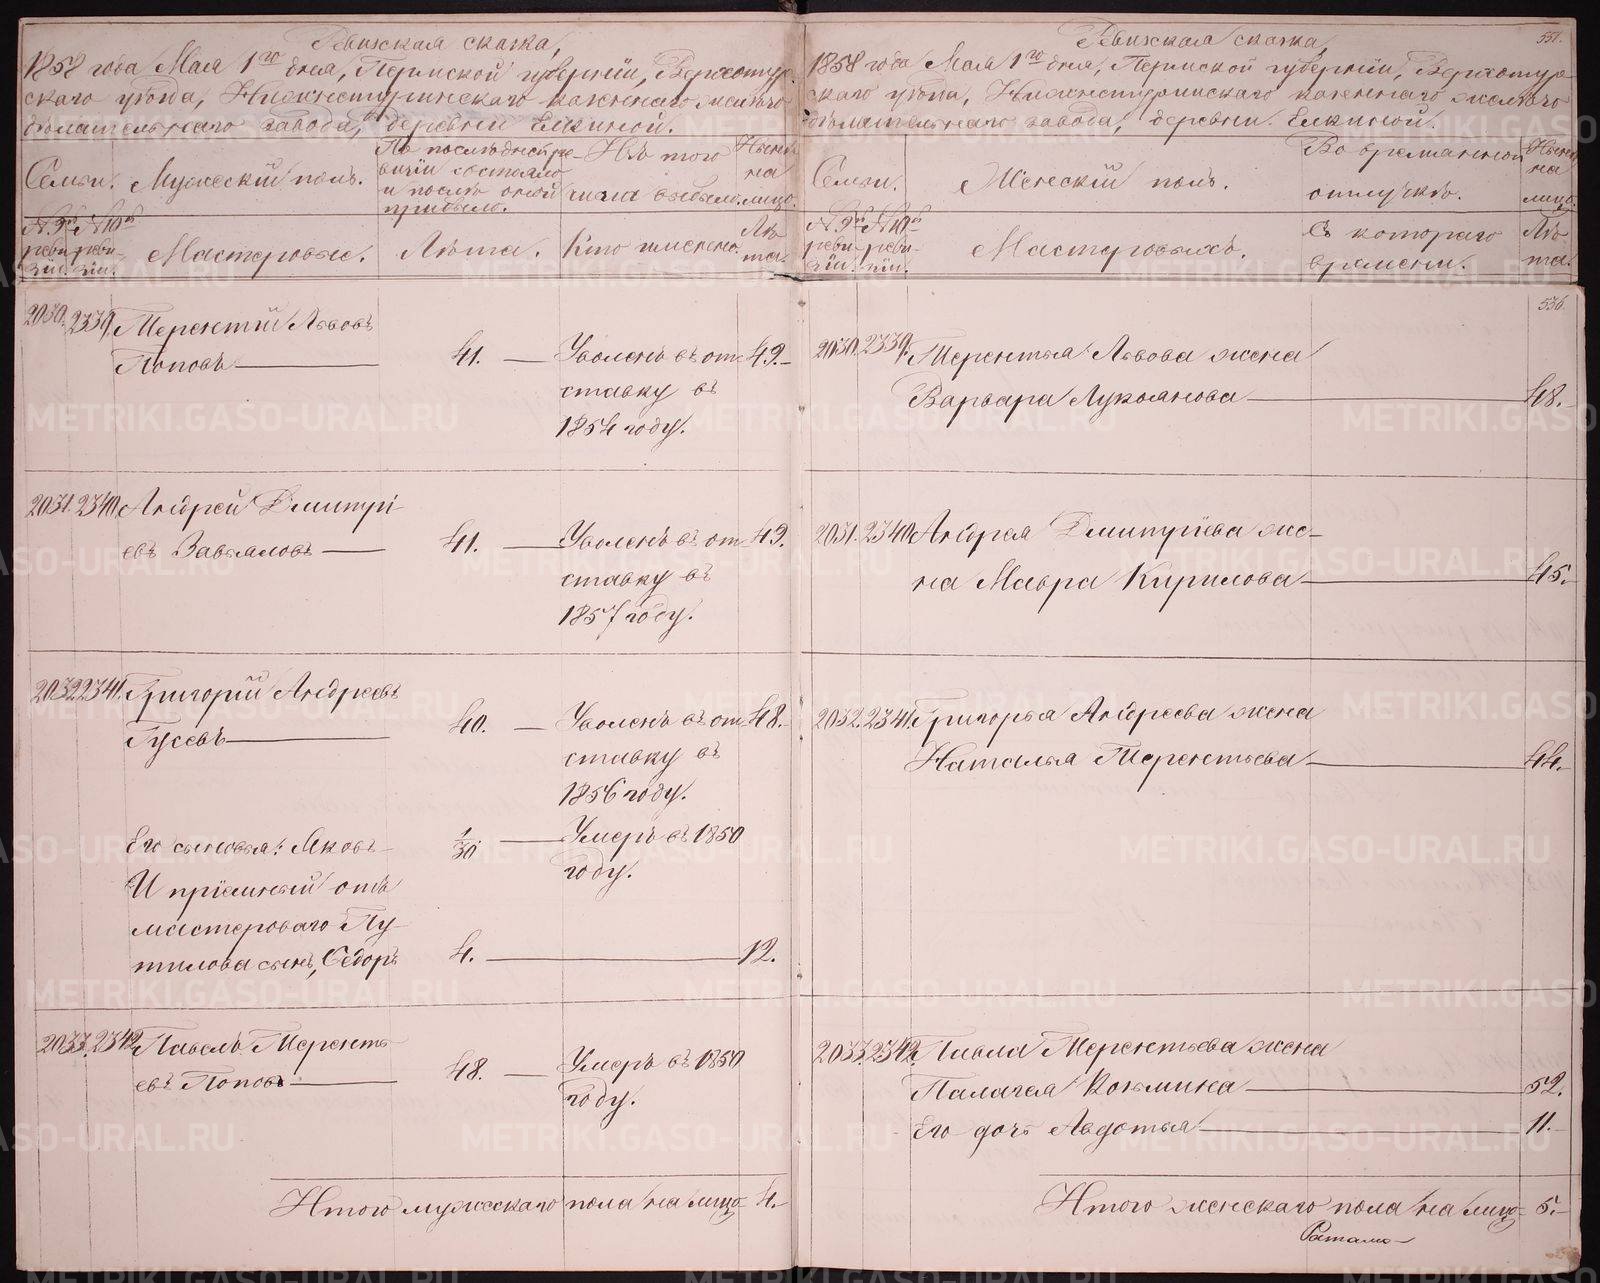 Ревизская сказка,
1858 года Мая 1го дня, Пермской губернии, Верхотур-
скаго уѣзда, Нижнетуринскаго казеннаго желѣзо
дѣлательнаго завода, деревни Елкиной.
Семьи.
Мужескій полъ.
По послѣдней ре-
визіи состояло
и послѣ оной
прибыло.
Изъ того
числа выбыло.
Нынѣ
на
лицо.
№ 9й
реви-
зіи.
№ 10й
реви-
зіи.
Мастеровые.
Лѣта.
Кто именно.
Лѣ
та.
2030. 2339. Терентій Львовъ
Поповъ 41. Уволенъ въ от- 49.
ставку въ
1854 году.
2031. 2340. Андрей Дмитрі
евъ Завьяловъ 41. Уволенъ въ от- 49.
ставку въ
1857 году.
2032. 2341. Григорій Андреевъ
Гусевъ 40. Уволенъ въ от- 48.
ставку въ
1856 году.
Его сыновья: Яковъ 1/30 Умеръ въ 1850
году.
И пріемный отъ
мастероваго Пу-
тилова сынъ, Ѳедоръ 4. 12.
2033. 2342. Павелъ Теренть-
евъ Поповъ 48. Умеръ въ 1850
году.
Итого мужескаго пола на лицо 4.
551.
Ревизская сказка,
1858 года Мая 1го дня, Пермской губерніи, Верхотур-
скаго уѣзда, Нижнетуринскаго казеннаго желѣзо
дѣлательнаго завода, деревни Елкиной.
Семьи.
Женскій полъ.
Во временной
отлучкѣ.
Нынѣ
на
лицо.
№ 9й
реви-
зіи.
№ 10й
реви-
зіи.
Мастеровыхъ.
Съ котораго
времени.
Лѣ-
та.
536.
2030. 2339. Терентья Львова жена
Варвара Лукоянова 48.
2031. 2340. Андрея Дмитріева же-
на Мавра Кирилова 45.
2032. 2341. Григорья Андреева жена
Наталья Терентьева 44.
2033. 2342. Павла Терентьева жена
Палагея Козьмина 52.
Его дочь Авдотья 11.
Итого женскаго пола на лицо 5.
METRIKI.GASO-URAL.RU